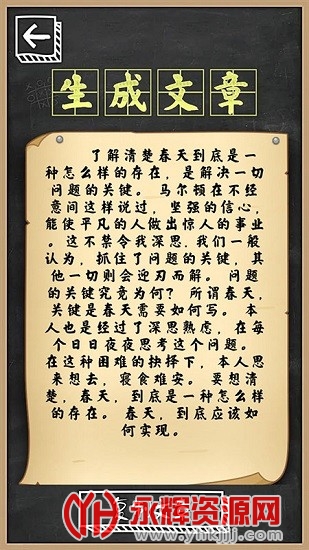 生成文章
了解清楚春天到底是一
种怎么样的存在，是解决一切
问题的关键。 马尔顿在不经
意间这样说过，坚强的信心，
能使平凡的人做出惊人的事业
。这不禁令我深思.我们一般
认为，抓住了问题的关键，其
他一切则会迎刃而解。 问题
的关键究竟为何？ 所谓春天，
关键是春天需要如何写。 本
人也是经过了深思熟虑，在每
个日日夜夜思考这个问题。
在这种困难的抉择下，本人思
来想去，寝食难安。 要想清
楚，春天，到底是一种怎么样
的存在。 春天，到底应该如
何实现。
永辉资源网
www.yhkjjj.com